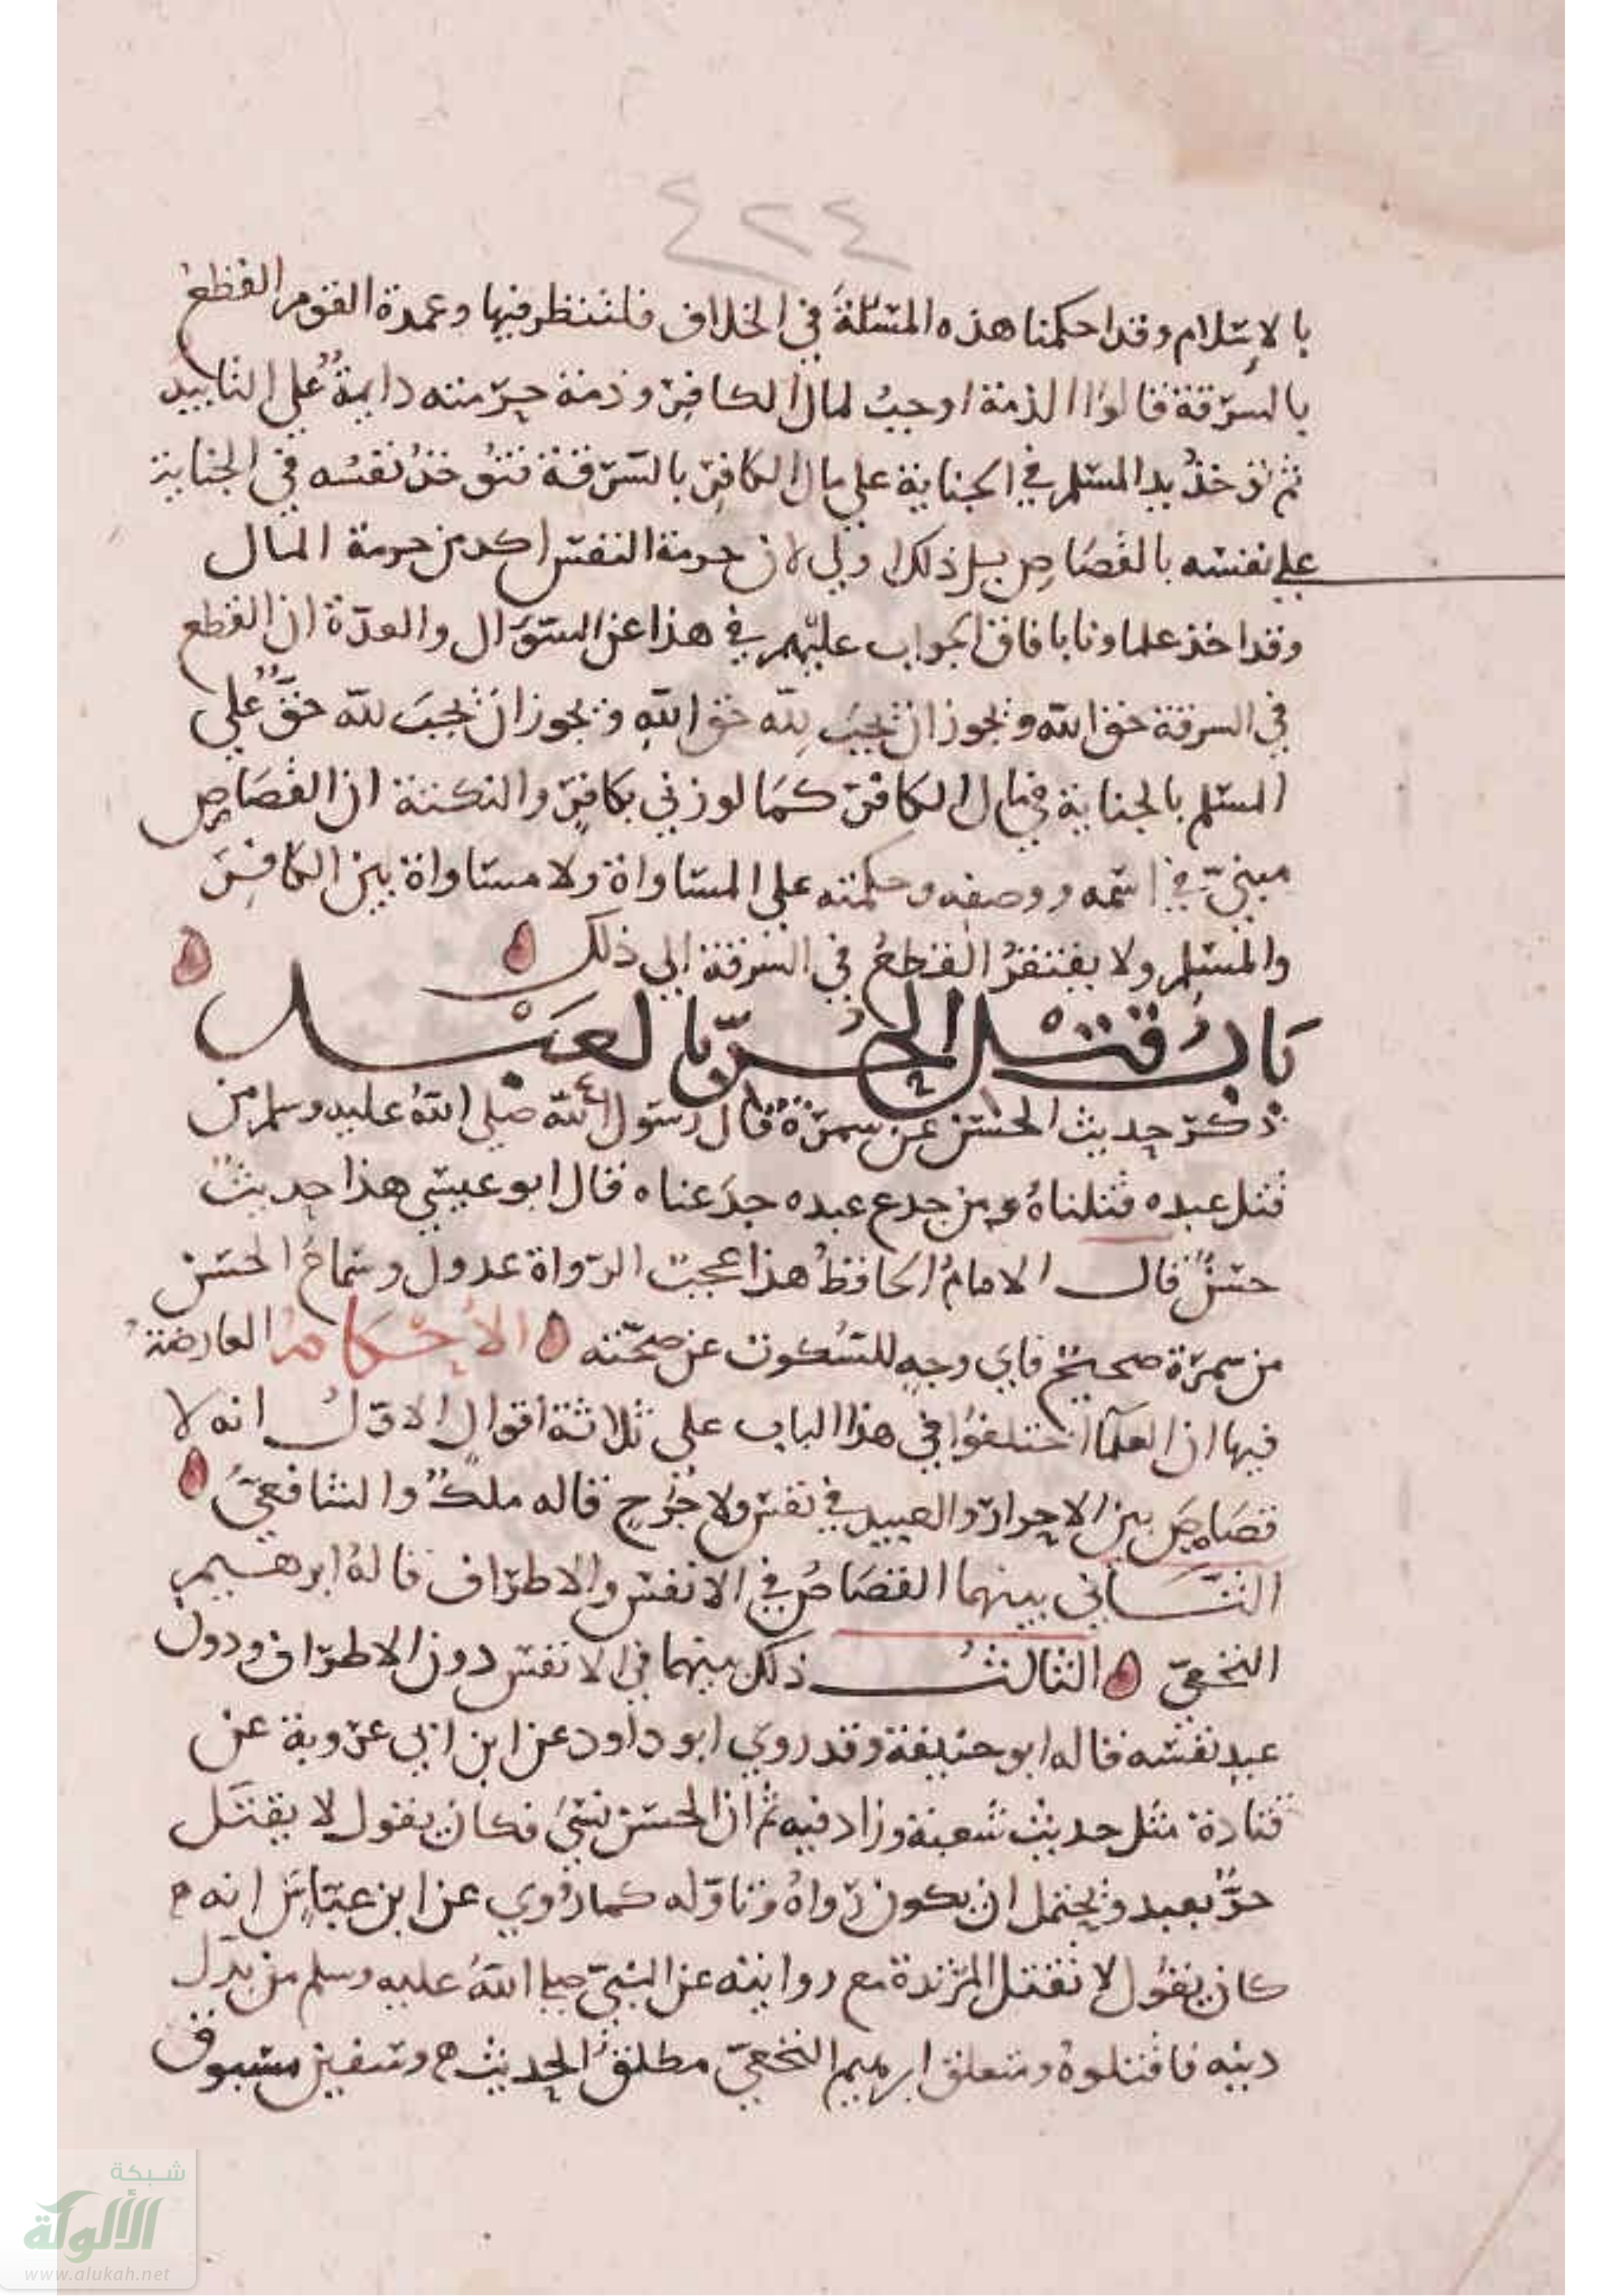 ٤٢٤
بالاسلام وقد احكمنا هذه المسئلة في الخلاف فلتنظر فيها وعمدة القوم القطع
بالسرقة قالوا الذمة اوجبت لمال الكافر وذمة حرمته دايمةٌ علي التابيد
ثم تؤخذُ يد المسلم في الجناية علي مال الكافر بالسرقة فتؤخذُ نفسُه في الجناية
علي نفسه بالقصاص بل ذلك اولي لان حرمة النفس اكد من حرمة المال
وقد اخذ علماونا بافاق الجواب عليهم في هذا عن السؤال والعمدة ان القطع
في السرقة حق الله ويجوز ان يجبَ لِلّه حق اللهِ ويجوز ان يجبَ لله حقٌّ علي
المسلم بالجناية في مال الكافر كما لو زني بكافرٍ والنكتة ان القصاص
مبنيّ في اسمه ووصفه وحكمته علي المساواة ولا مساواة بين الكافر
والمسلم ولا يفتقرُ القطعُ في السرقة الي ذلك
بَابُ قتْل الحُرّ بالعَبْد
ذكر حديث الحسن عن سمرة قال رسول الله صلي اللهُ عليه وسلم من
قتل عبده قتلناهُ ومن جدع عبده جدَعناه قال ابو عيسي هذا حديثٌ
حسنٌ قال الامامُ الحافظُ هذا عجبٌ الرّواة عدول وسماعُ الحسن
من سمرة صحيحٌ فاي وجهٍ للسُكوت عن صحّته الأحكام العارضة
فيها ان العلمآ اختلفوا في هذا الباب علي ثلاثة أقوال الاوّلُ انه لا
قصَاصَ بين الاحرار والعبيد في نفس ولا جُرحٍ قاله ملكٌ والشافعيّ
الثاني بينهما القصاصُ في الانفس والاطراف قالهُ ابرهيم
النخعيّ الثالثُ ذلك بينهما في الانفس دون الاطراف ودون
عبد نفسه قاله ابو حنيفة وقد روي ابو داود عن ابن ابي عروبة عن
قتادة مثل حديث شعبة وزاد فيه ثم ان الحسن نسيَ فكان يقول لا يقتل
حرٌّ بعبد ويحتمل ان يكون رواهُ وتاوّله كما رُوي عن ابن عبّاسٍ انه
كان يقول لا تقتل المرتدة مع روايته عن النبيّ صلي اللهُ عليه وسلم من بدّل
دينه فاقتلوهُ ومتعلق ابرهيم النخعيّ مطلقُ الحديث وسفين مسبوق
شبكة
الألوكة
www.alukah.net